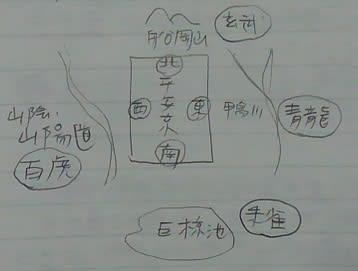 船岡山
玄武
北
平安京
西
東
南
鴨川
青龍
山陰・
山陽道
白虎
巨椋池
朱雀